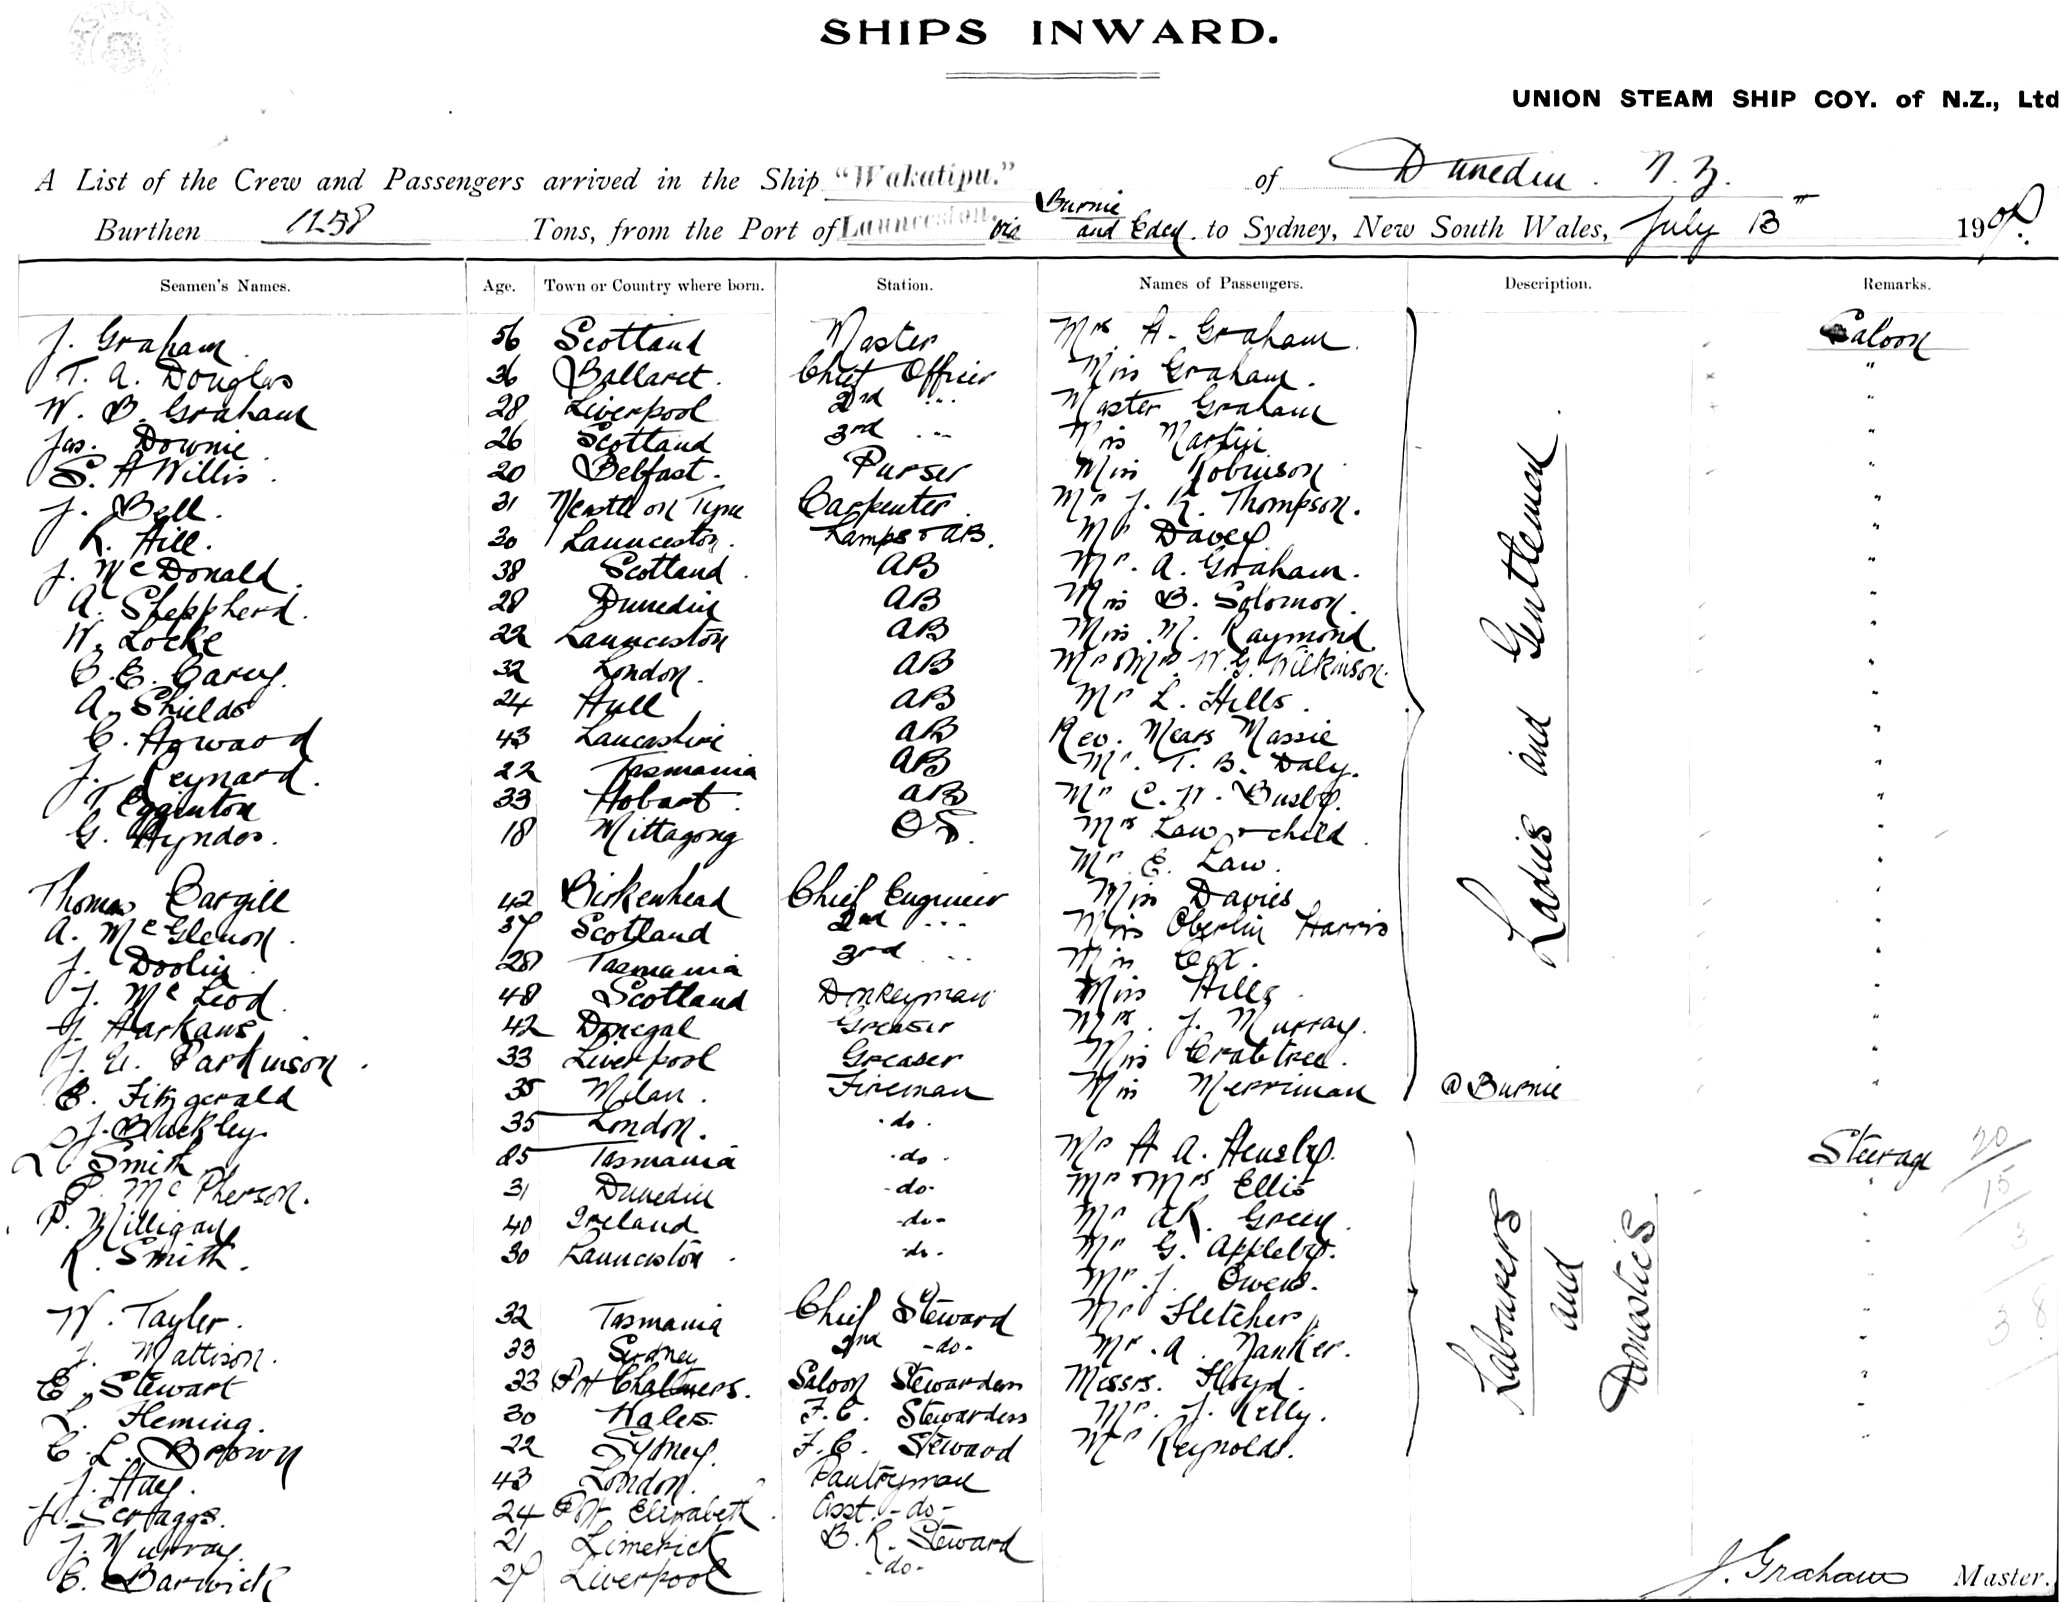 SHIPS INWARD.
UNION STEAM SHIP COY. of N.Z., Ltd
A List of the Crew and Passengers arrived in the Ship "Wakatipu." of Dunedin. N.Z.
Burthen 1158 Tons, from the Port of Launceston, via Burnie and Eden to Sydney, New South Wales, July 13th 190
Seamen's Names. Age. Town or Country where born. Station. Names of Passengers. Description. Remarks.
J. Graham 56 Scotland Master Mrs A. Graham. Saloon
T. A. Douglas 36 Ballaret. Chief Officer Miss Graham. "
W. B. Graham 28 Liverpool 2nd " Master Graham "
Jas. Downie 26 Scotland 3rd " Miss Martin "
S. A Willis 20 Belfast. Purser Miss Robinson "
J. Bell. 31 N'castle on Tyne Carpenter. Mr J. R. Thompson. "
R. Hill. 30 Launceston. Lamps & AB. Mr Davey "
J. McDonald. 38 Scotland. AB Mr. A. Graham. "
A. Sheppherd. 28 Dunedin AB Miss B. Solomon. "
W. Locke 22 Launceston AB Miss M. Raymond "
C. E. Carey. 32 London. AB Mr & Mrs W. G. Wilkinson. "
A. Shields 24 Hull AB Mr L. Hills. "
C. Howard 43 Lancashire AB Rev. Mears Massie "
J. Reynard. 22 Tasmania AB Mr. T. B. Daly. "
T Egginton 33 Hobart. AB Mr C. W. Busby. "
G. Hyndes. 18 Mittagong OS. Mrs Law & child. "
Mr E. Law. "
Thomas Cargill 42 Birkenhead Chief Engineer Miss Davies "
A. McGlenon. 37 Scotland 2nd " Miss Oberlin Harris "
J. Doolin. 28 Tasmania 3rd " Miss Cox. "
J. McLeod. 48 Scotland Donkeyman Miss Hills "
G. Harkans 42 Donegal Greaser Mrs. J. Murray. "
J. E. Parkinson. 33 Liverpool Greaser Miss Crabtree. "
E. Fitzgerald 35 Milan. Fireman Miss Merriman @ Burnie "
Ladies and Gentlemen
J. Buckley. 35 London. -do-
L Smith 25 Tasmania -do- Mr H A. Hensby. Steerage 20
P. McPherson. 31 Dunedin -do- Mr & Mrs Ellis " 15
P. Milligan 40 Ireland -do- Mr AR. Green. " 3
R. Smith. 30 Launceston. -do- Mr G. Appleby. "
Mr. J. Owens.
W. Tayler. 32 Tasmania Chief Steward Mr Fletcher "
J. Mattison. 33 Sydney 2nd -do- Mr. A. Yanker. " 38
E. Stewart 33 Pt Chalmers. Saloon Stewardess Messrs. Floyd. "
L. Fleming. 30 Wales. F.C. Stewardess Mr. J. Kelly. "
C. L. Brown 22 Sydney. F.C. Steward Mr Reynolds. "
Labourers and Domestics
J. Hay. 43 London. Pantryman
J. Scraggs. 24 Pt Elizabeth. Asst. -do-
J. Murray. 21 Limerick B. R. Steward
C. Barwick 27 Liverpool -do-
J. Graham Master.